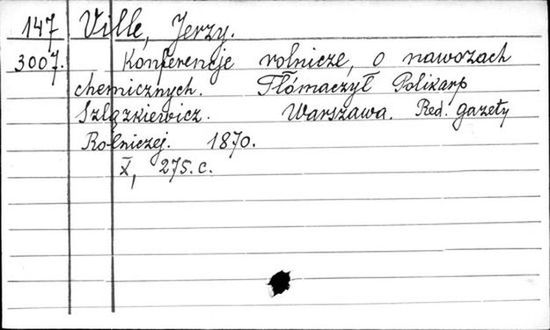 147 Ville, Jerzy.
3007. Konferencje rolnicze, o nawozach
chemicznych. Tłómaczył Polikarp
Szlązkiewicz. Warszawa. Red. gazety
Rolniczej. 1870.
X, 275. c.